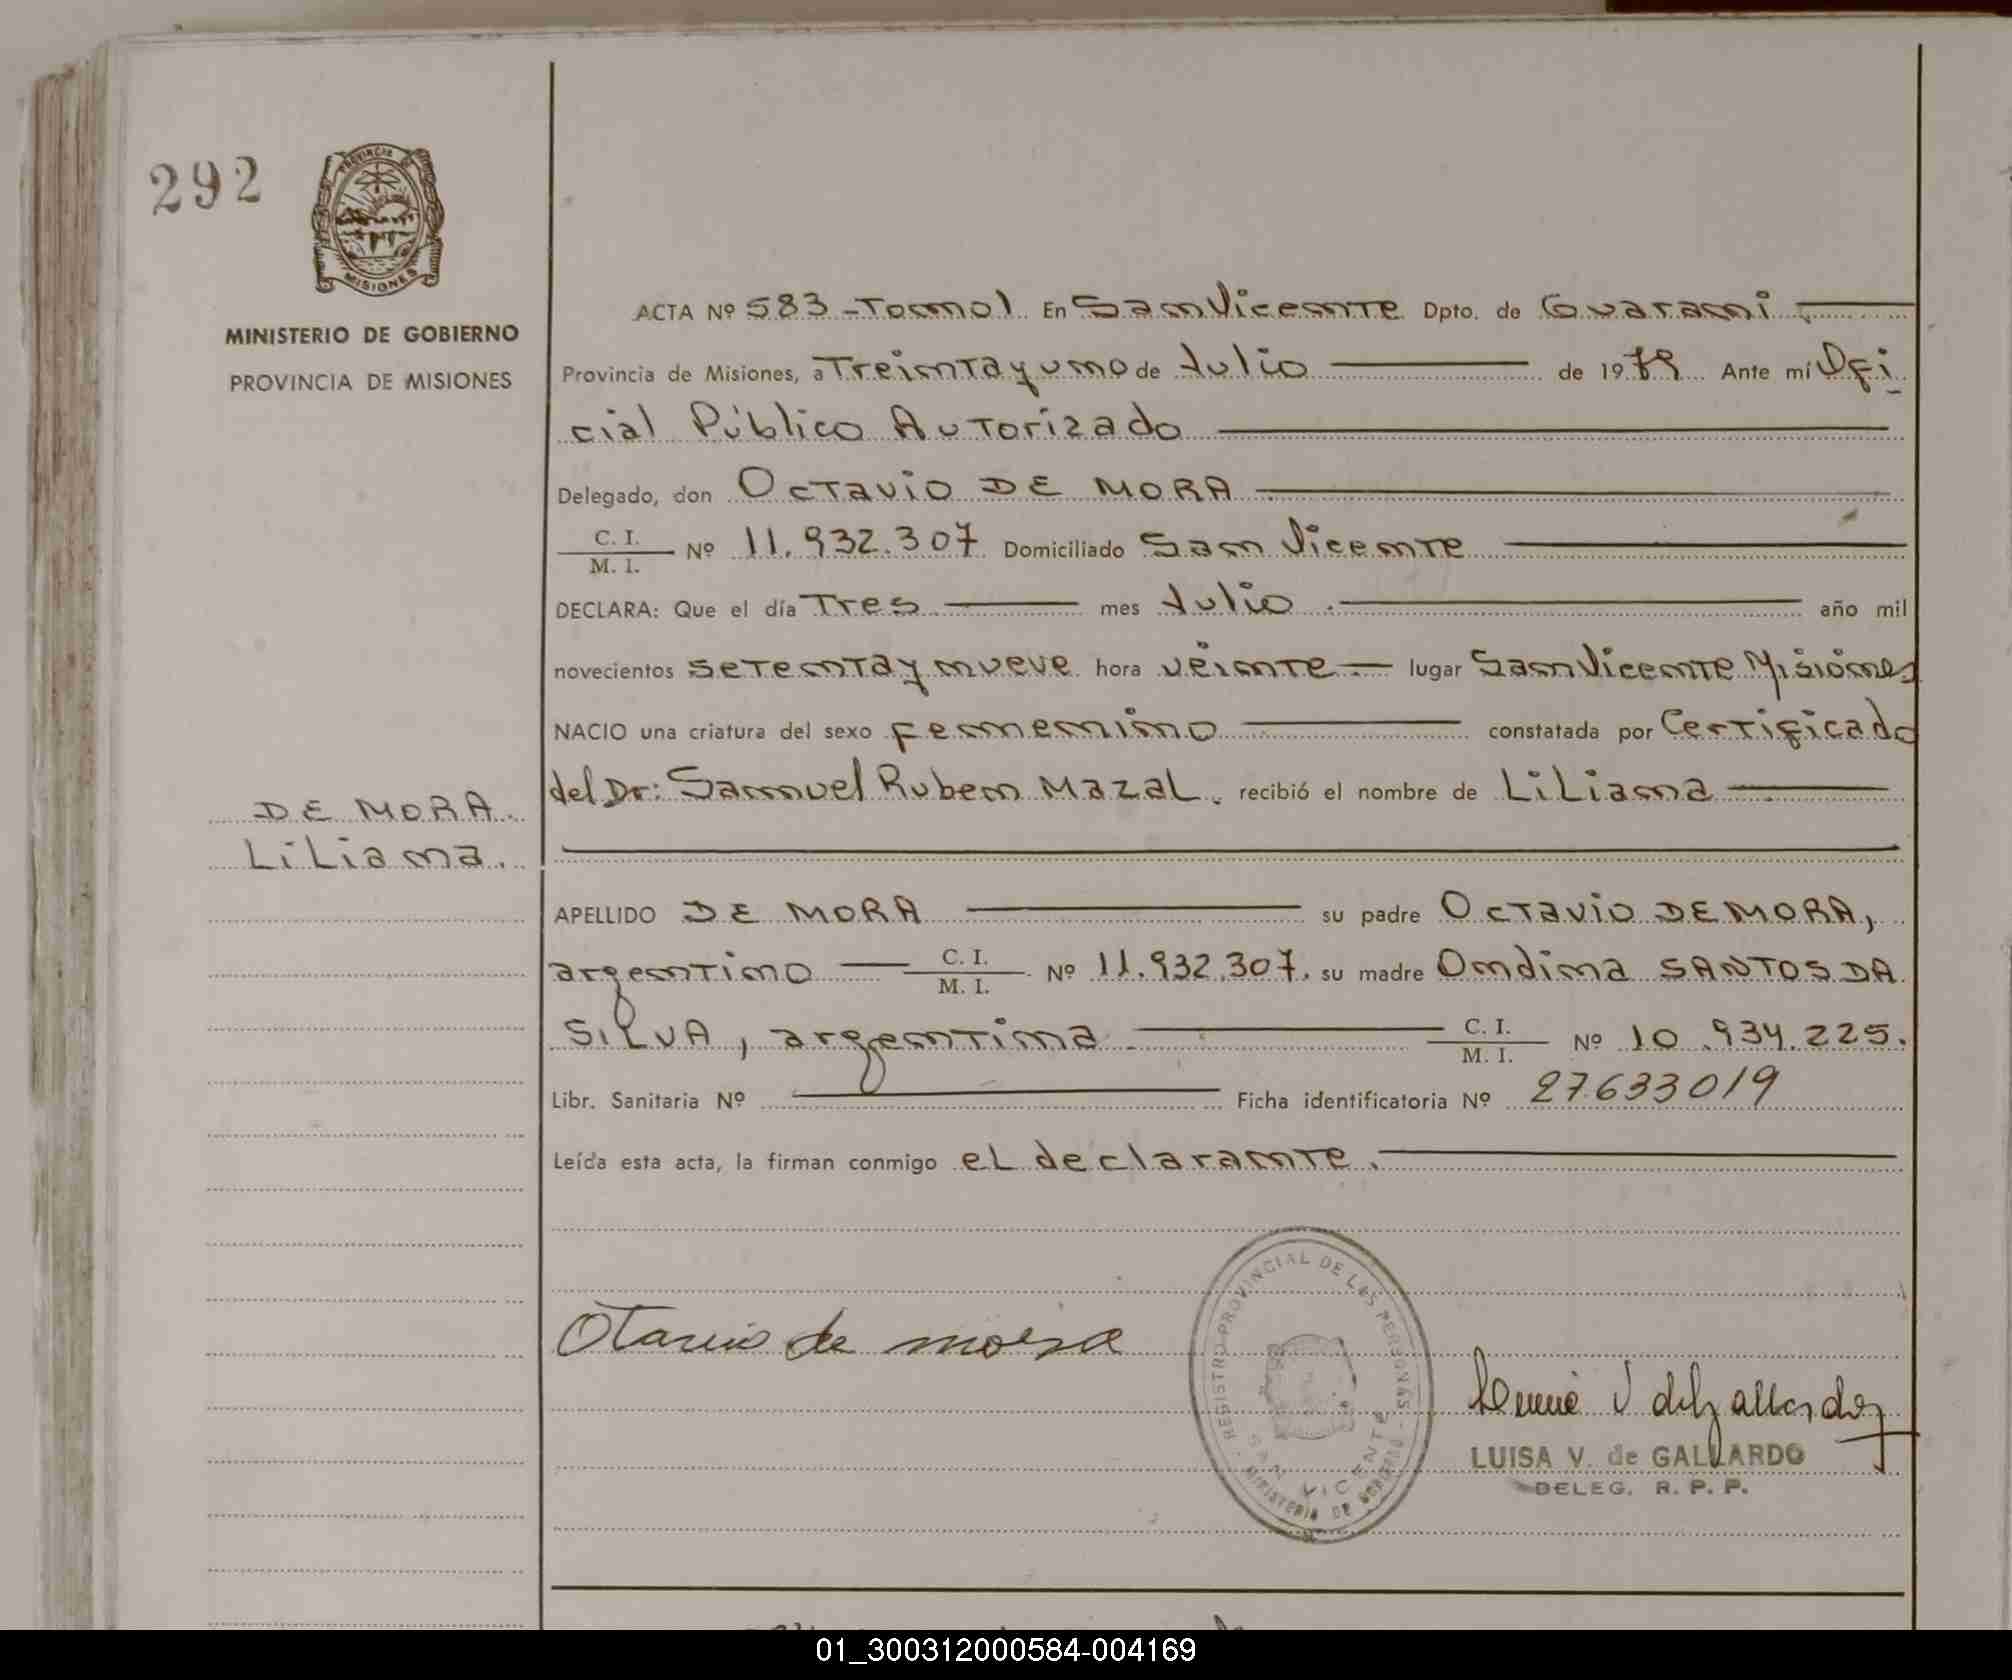 292
PROVINCIA
MISIONES
MINISTERIO DE GOBIERNO
PROVINCIA DE MISIONES
ACTA Nº 583 - Tomo 1. En San Vicente Dpto. de Guaraní
Provincia de Misiones, a Treinta y uno de Julio de 1979 Ante mí Ofi
cial Público Autorizado
Delegado, don Octavio DE MORA
C. I.
M. I. Nº 11.932.307 Domiciliado San Vicente
DECLARA: Que el día Tres mes Julio año mil
novecientos setenta y nueve hora veinte lugar San Vicente Misiones
NACIO una criatura del sexo femenino constatada por Certificado
del Dr: Samuel Ruben Mazal. recibió el nombre de Liliana
DE MORA.
Liliana.
APELLIDO DE MORA su padre Octavio DE MORA,
argentino C. I.
M. I. Nº 11.932.307. su madre Ondina SANTOS DA
SILVA, argentina C. I.
M. I. Nº 10.934.225.
Libr. Sanitaria Nº Ficha identificatoria Nº 27.633019
Leída esta acta, la firman conmigo el declarante.
REGISTRO PROVINCIAL DE LAS PERSONAS
SAN VICENTE
MINISTERIO DE GOBIERNO
Otavio de mora
LUISA V. de GALLARDO
DELEG. R. P. P.
01_300312000584-004169